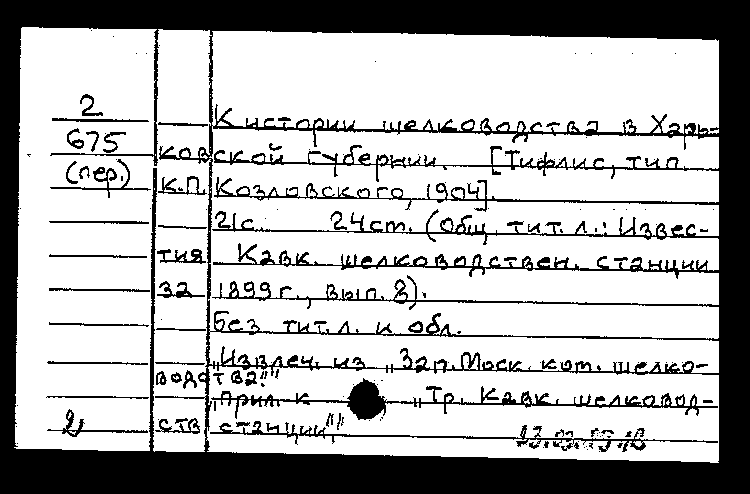 2
675
(пер.)
К истории шелководства в Харь-
ковской губернии. [Тифлис, тип.
К.П. Козловского, 1904].
21с. 24 см. (Общ. тит. л.: Извес-
тия Кавк. шелководствен. станции
за 1899 г., вып. 3).
Без тит. л. и обл.
„Извлеч. из „Зап. Моск. ком. шелко-
водства.""
„Прил. к „Тр. Кавк. шелковод-
ств станции""
2